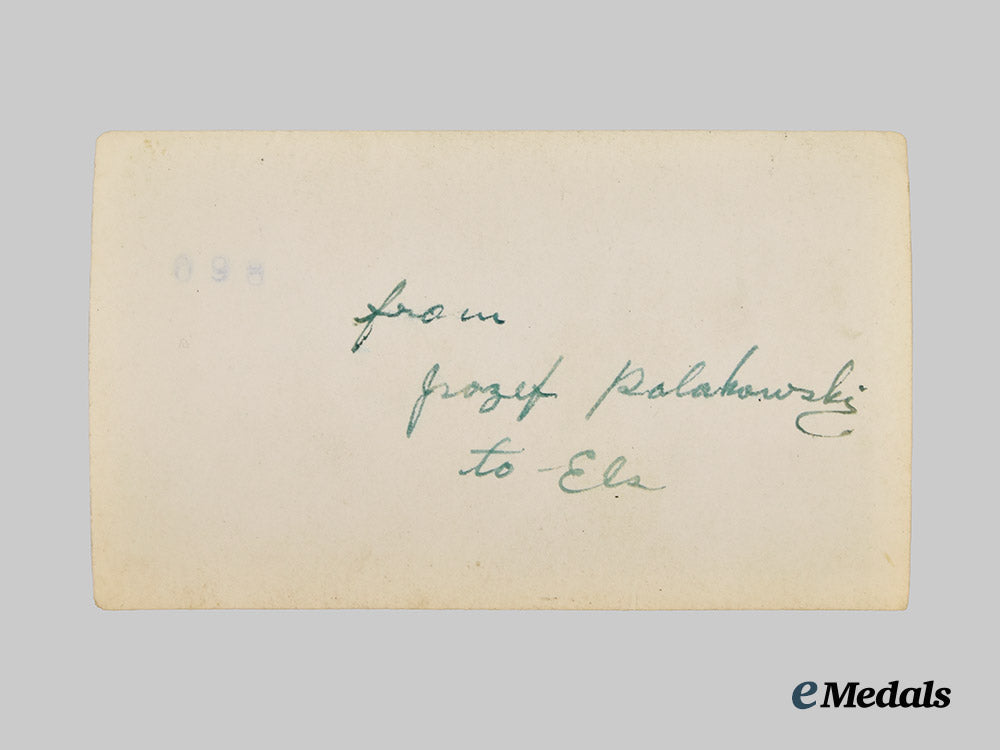 from
Jozef Polakowski
to Els
eMedals